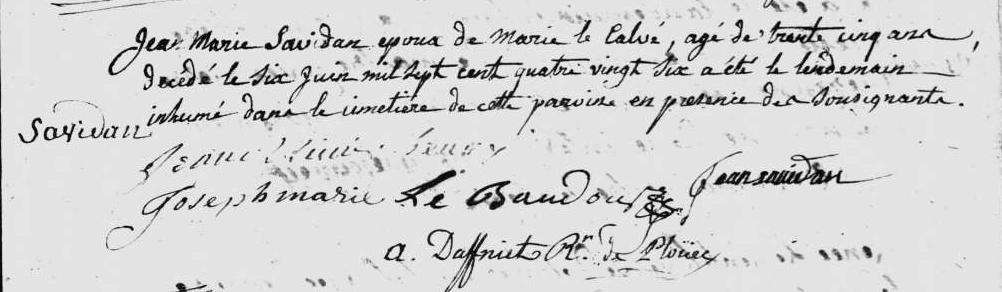 Jean Marie Savidan epoux de Marie le Calvé, agé de trente cinq ans,
decedé le six Juin mil sept cent quatre vingt six a été le lendemain
inhumé dans le cimetière de cette paroisse en presence des soussignants.
Savidan
Joseph marie Le Baudour
Jean savidan
a. Daffniet Rr. de Ploüec